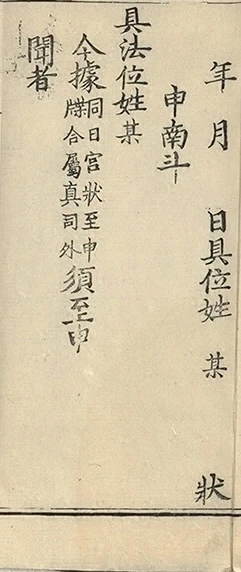 年 月 日具位姓 某 狀
申南斗
具法位姓某
今據同日宮狀至申牒合屬真司外須至申
聞者